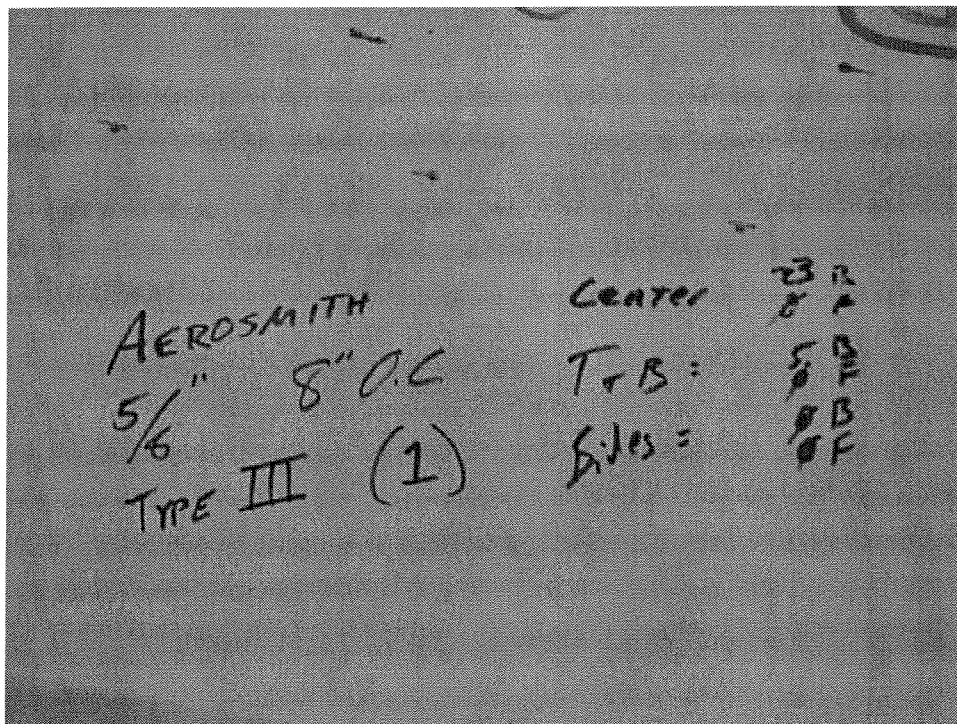 AEROSMITH
5/8" 8" O.C
TYPE III (1)
Center 23 B
F
T + B: 5 B
0 F
Sides = 0 B
0 F